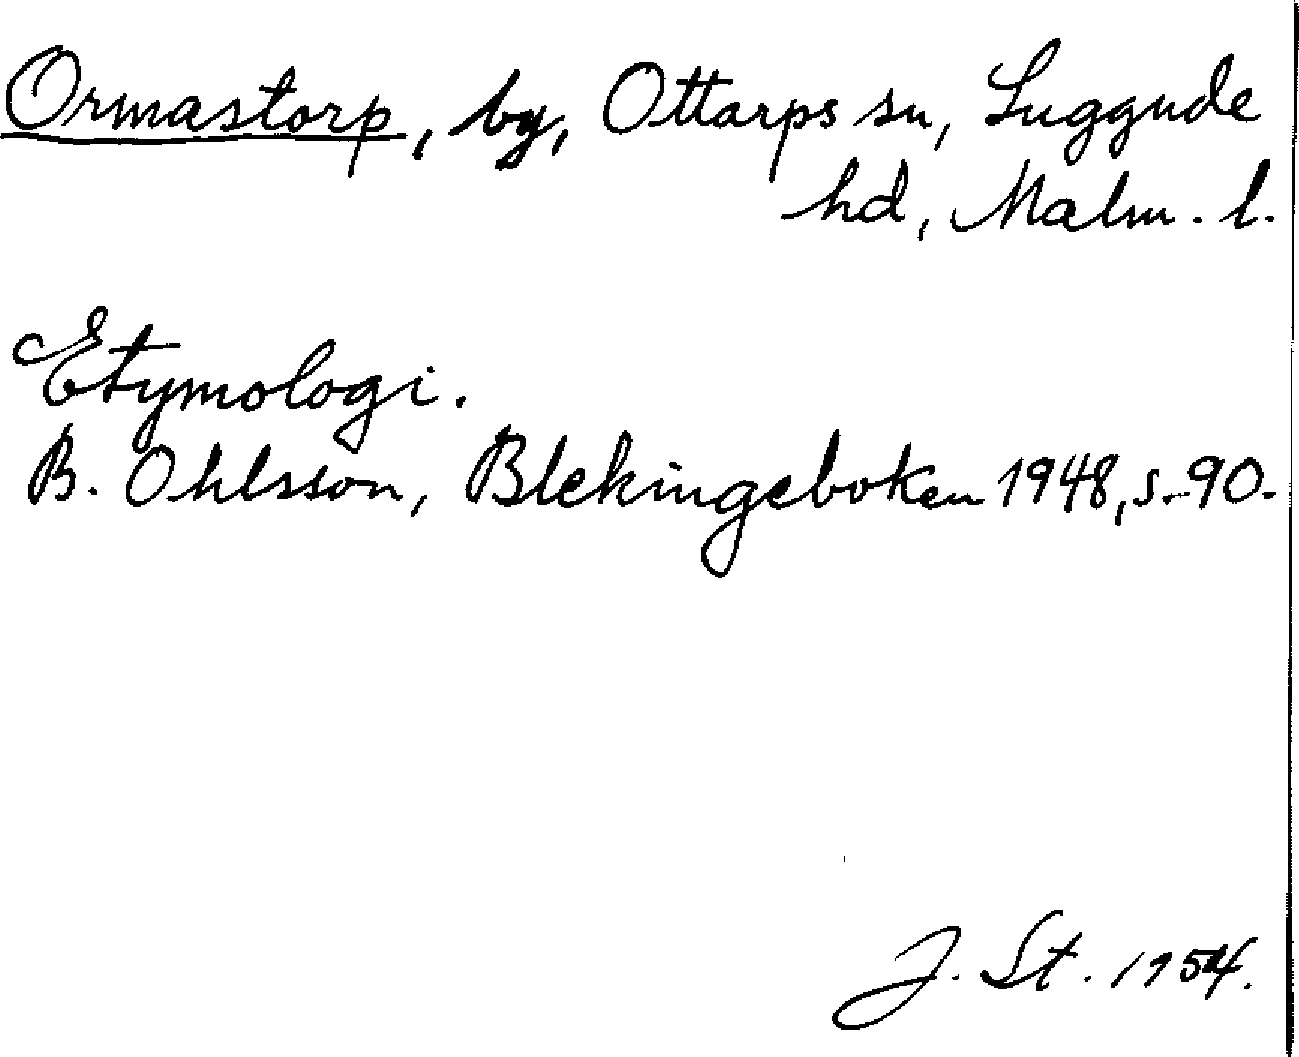 Ormastorp, by, Ottarps sn, Luggude
hd, Malm. l.
Etymologi.
B. Ohlsson, Blekingeboken 1948, s. 90.
J. St. 1954.